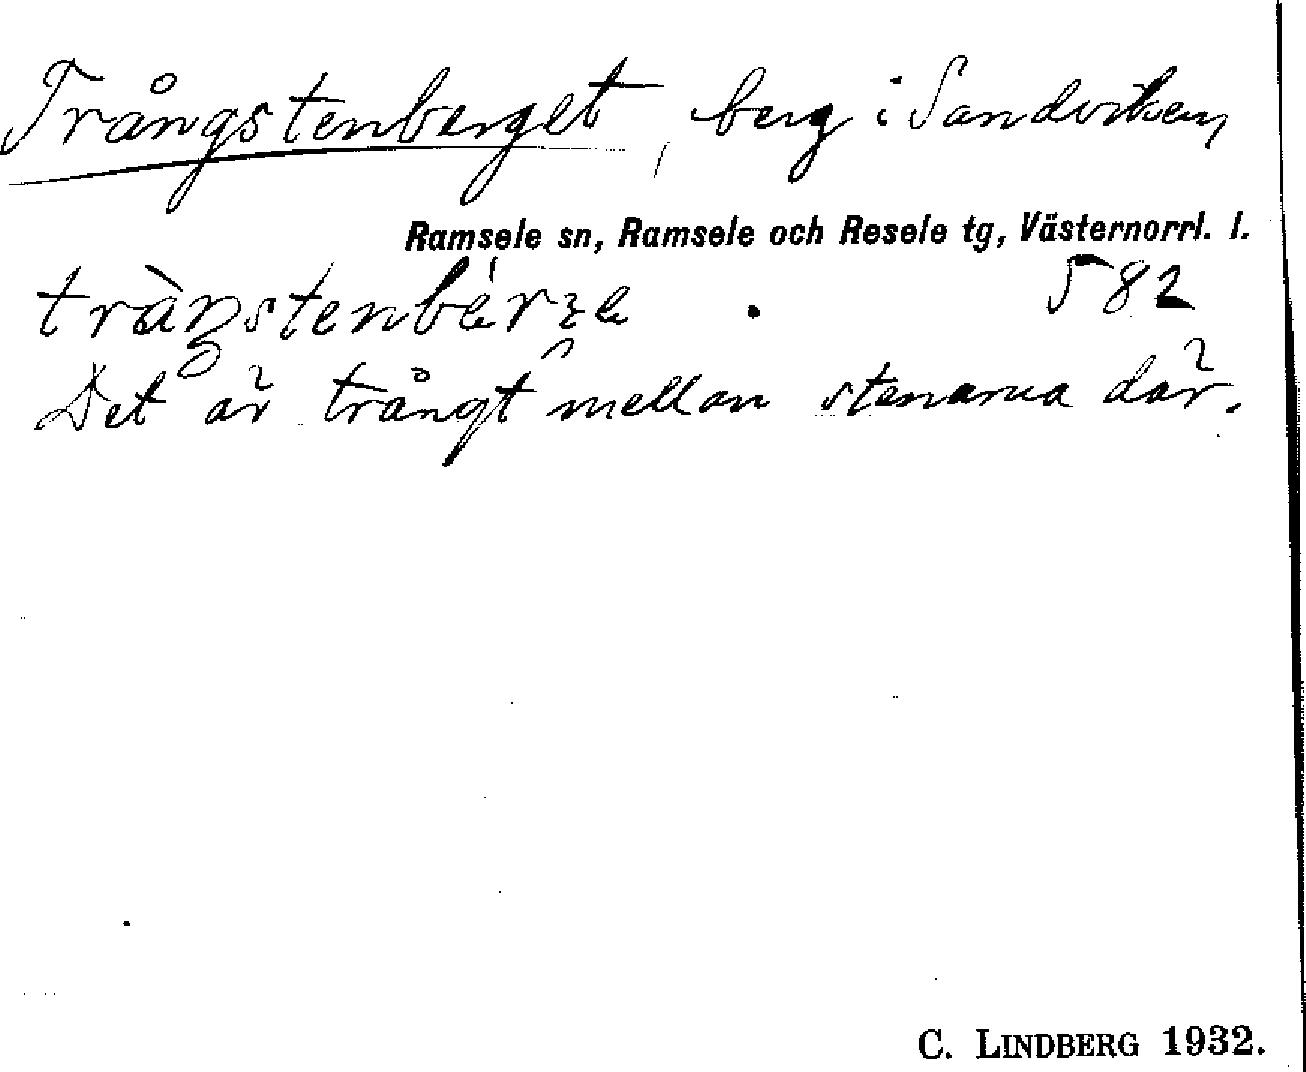 Trångstenberget, berg i Sandviken,
Ramsele sn, Ramsele och Resele tg, Västernorrl. l.
582
Det är trångt mellan stenarna där.
C. LINDBERG 1932.